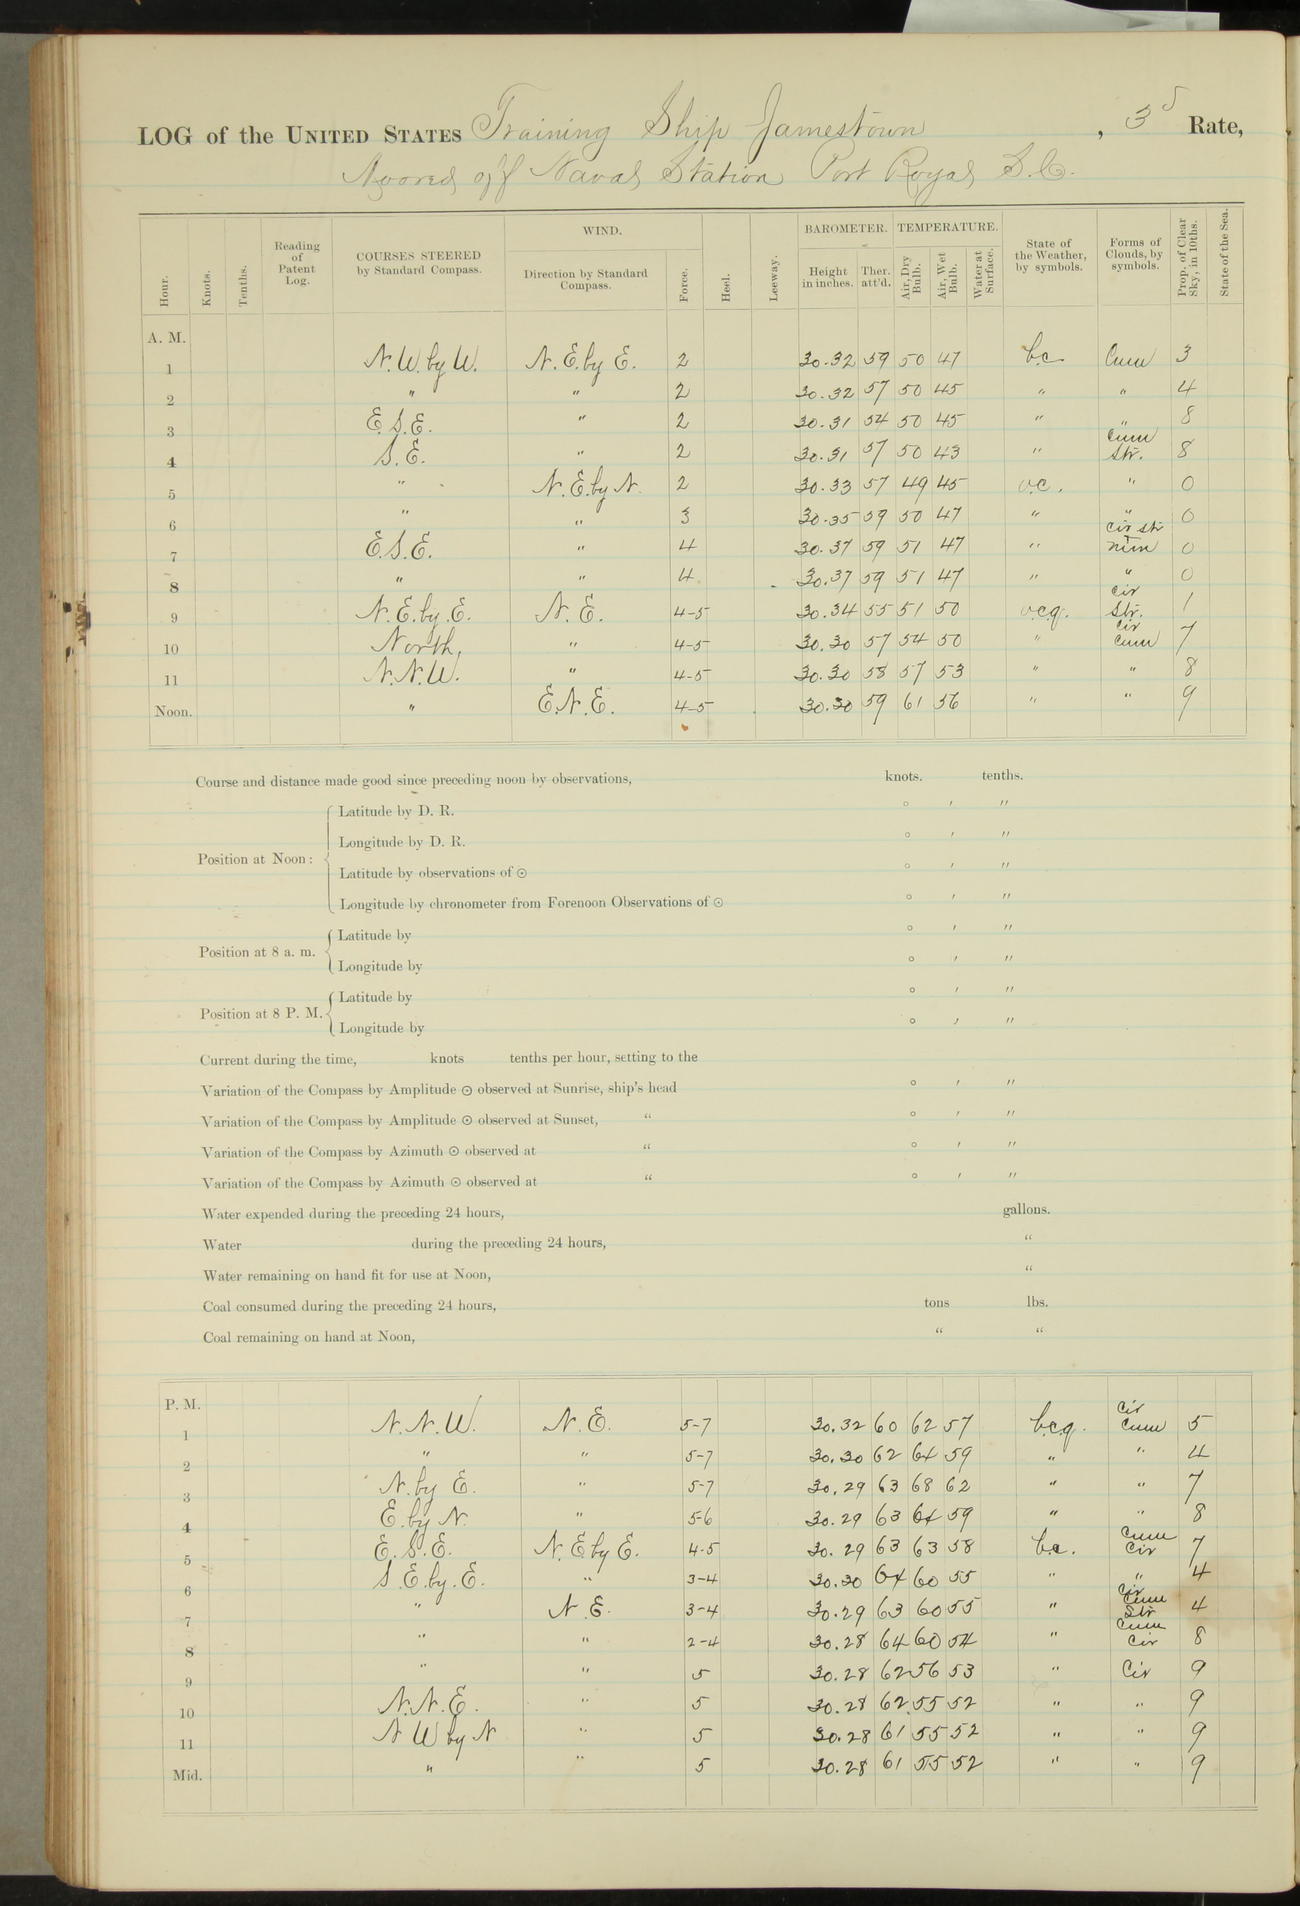 LOG of the UNITED STATES Training Ship Jamestown, 3d Rate,
Moored off Naval Station Port Royal S.C.
Hour. Knots. Tenths. Reading of Patent Log. COURSES STEERED by Standard Compass. WIND. Direction by Standard Compass. Force. Heel. Leeway. BAROMETER. Height in inches. Ther. att'd. TEMPERATURE. Air, Dry Bulb. Air, Wet Bulb. Water at Surface. State of the Weather, by symbols. Forms of Clouds, by symbols. Prop. of Clear Sky, in 10ths. State of the Sea.
A. M.
1 N.W. by W. N.E. by E. 2 30.32 59 50 47 b.c. Cum 3
2 " " 2 30.32 57 50 45 " " 4
3 E.S.E. " 2 30.31 54 50 45 " " 8
4 S.E. " 2 30.31 57 50 43 " Cum Str. 8
5 " N.E. by N. 2 30.33 57 49 45 o.c. " 0
6 " " 3 30.35 59 50 47 " " 0
7 E.S.E. " 4 30.37 59 51 47 " Cir Str Nim 0
8 " " 4 30.37 59 51 47 " " 0
9 N.E. by E. N.E. 4-5 30.34 55 51 50 o.c.q. Cir Str. 1
10 North, " 4-5 30.30 57 54 50 " Cir Cum 7
11 N.N.W. " 4-5 30.30 58 57 53 " " 8
Noon. " E.N.E. 4-5 30.30 59 61 56 " " 9
Course and distance made good since preceding noon by observations, knots. tenths.
Position at Noon:
Latitude by D. R. ° ′ ″
Longitude by D. R. ° ′ ″
Latitude by observations of ☉ ° ′ ″
Longitude by chronometer from Forenoon Observations of ☉ ° ′ ″
Position at 8 a. m.
Latitude by ° ′ ″
Longitude by ° ′ ″
Position at 8 P. M.
Latitude by ° ′ ″
Longitude by ° ′ ″
Current during the time, knots tenths per hour, setting to the
Variation of the Compass by Amplitude ☉ observed at Sunrise, ship's head ° ′ ″
Variation of the Compass by Amplitude ☉ observed at Sunset, “ ° ′ ″
Variation of the Compass by Azimuth ☉ observed at “ ° ′ ″
Variation of the Compass by Azimuth ☉ observed at “ ° ′ ″
Water expended during the preceding 24 hours, gallons.
Water during the preceding 24 hours, “
Water remaining on hand fit for use at Noon, “
Coal consumed during the preceding 24 hours, tons lbs.
Coal remaining on hand at Noon, “ “
P. M.
1 N.N.W. N.E. 5-7 30.32 60 62 57 b.c.q. Cir Cum 5
2 " " 5-7 30.30 62 64 59 " " 4
3 N. by E. " 5-7 30.29 63 68 62 " " 7
4 E. by N. " 5-6 30.29 63 64 59 " " 8
5 E.S.E. N.E. by E. 4-5 30.29 63 63 58 b.c. Cum Cir 7
6 S.E. by E. " 3-4 30.30 64 60 55 " " 4
7 " N.E. 3-4 30.29 63 60 55 " Cir Cum Str 4
8 " " 2-4 30.28 64 60 54 " Cum Cir 8
9 " " 5 30.28 62 56 53 " Cir 9
10 N.N.E. " 5 30.28 62 55 52 " " 9
11 N W by N " 5 30.28 61 55 52 " " 9
Mid. " " 5 30.28 61 55 52 " " 9